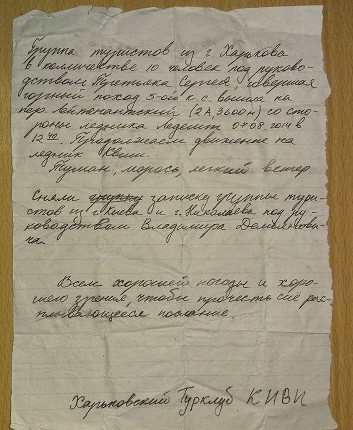 Группа туристов из г. Харькова
в колличестве 10 человек под руково-
дством Третьяка Сергея, совершая
горный поход 5-ой к.с. вышла на
пер. Лейтенантский (2А, 3600м) со сто-
роны ледника 07.08.2014 в
12 40. Продолжаем движение на
ледник Квиш.
Туман, морось, легкий ветер.
Сняли записку группы тури-
стов из г. Киева и г. Николаева под ру-
ководством Владимира
Всем хорошей погоды и хоро-
шего зрения, чтобы прочесть сие рас-
плывающееся послание.
Харьковский Турклуб КИВИ